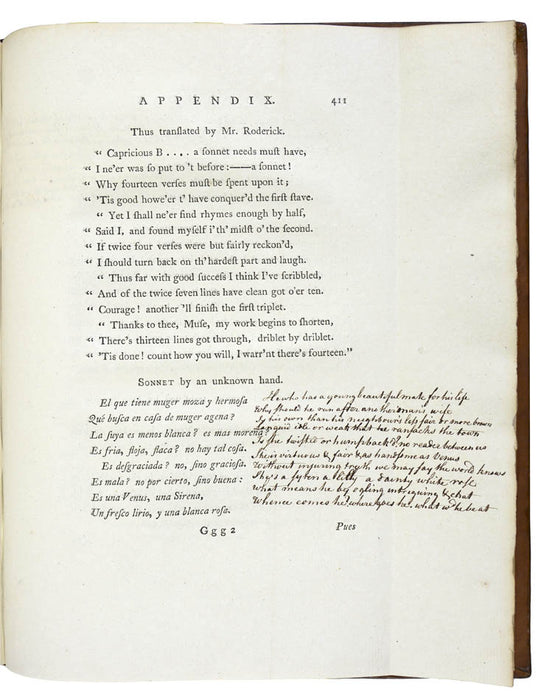 APPENDIX. 411
Thus tranſlated by Mr. Roderick.
“ Capricious B .... a ſonnet needs muſt have,
“ I ne'er was ſo put to 't before:——a ſonnet!
“ Why fourteen verſes muſt be ſpent upon it;
“ 'Tis good howe'er t' have conquer'd the firſt ſtave.
“ Yet I ſhall ne'er find rhymes enough by half,
“ Said I, and found myſelf i'th' midſt o'the ſecond.
“ If twice four verſes were but fairly reckon'd,
“ I ſhould turn back on th' hardeſt part and laugh.
“ Thus far with good ſucceſs I think I've ſcribbled,
“ And of the twice ſeven lines have clean got o'er ten.
“ Courage! another 'll finiſh the firſt triplet.
“ Thanks to thee, Muſe, my work begins to ſhorten,
“ There's thirteen lines got through, driblet by driblet.
“ 'Tis done! count how you will, I warr'nt there's fourteen.”
SONNET by an unknown hand.
El que tiene muger moza y hermosa
Qué buſca en caſa de muger agena?
La ſuya es menos blanca? es mas morena?
Es fria, floja, flaca? no hay tal coſa.
Es deſgraciada? no, ſino gracioſa.
Es mala? no por cierto, ſino buena:
Es una Venus, una Sirena,
Un freſco lirio, y una blanca roſa.
He who has a young beautiful mate for his life
Why should he run after another man's wife
Is his own than his neighbour's less fair or more brown
Languid idle or weak that he ransacks the town
Is she twisted or humpback'd? no reader between us
She's virtuous & fair & as handsome as Venus
Without injuring truth we may say the world knows
She's a syren a lilly a dainty white rose
What means he by ogling intriguing & chat
Whence comes he? where goes he? what w'd he be at
Ggg 2 Pues